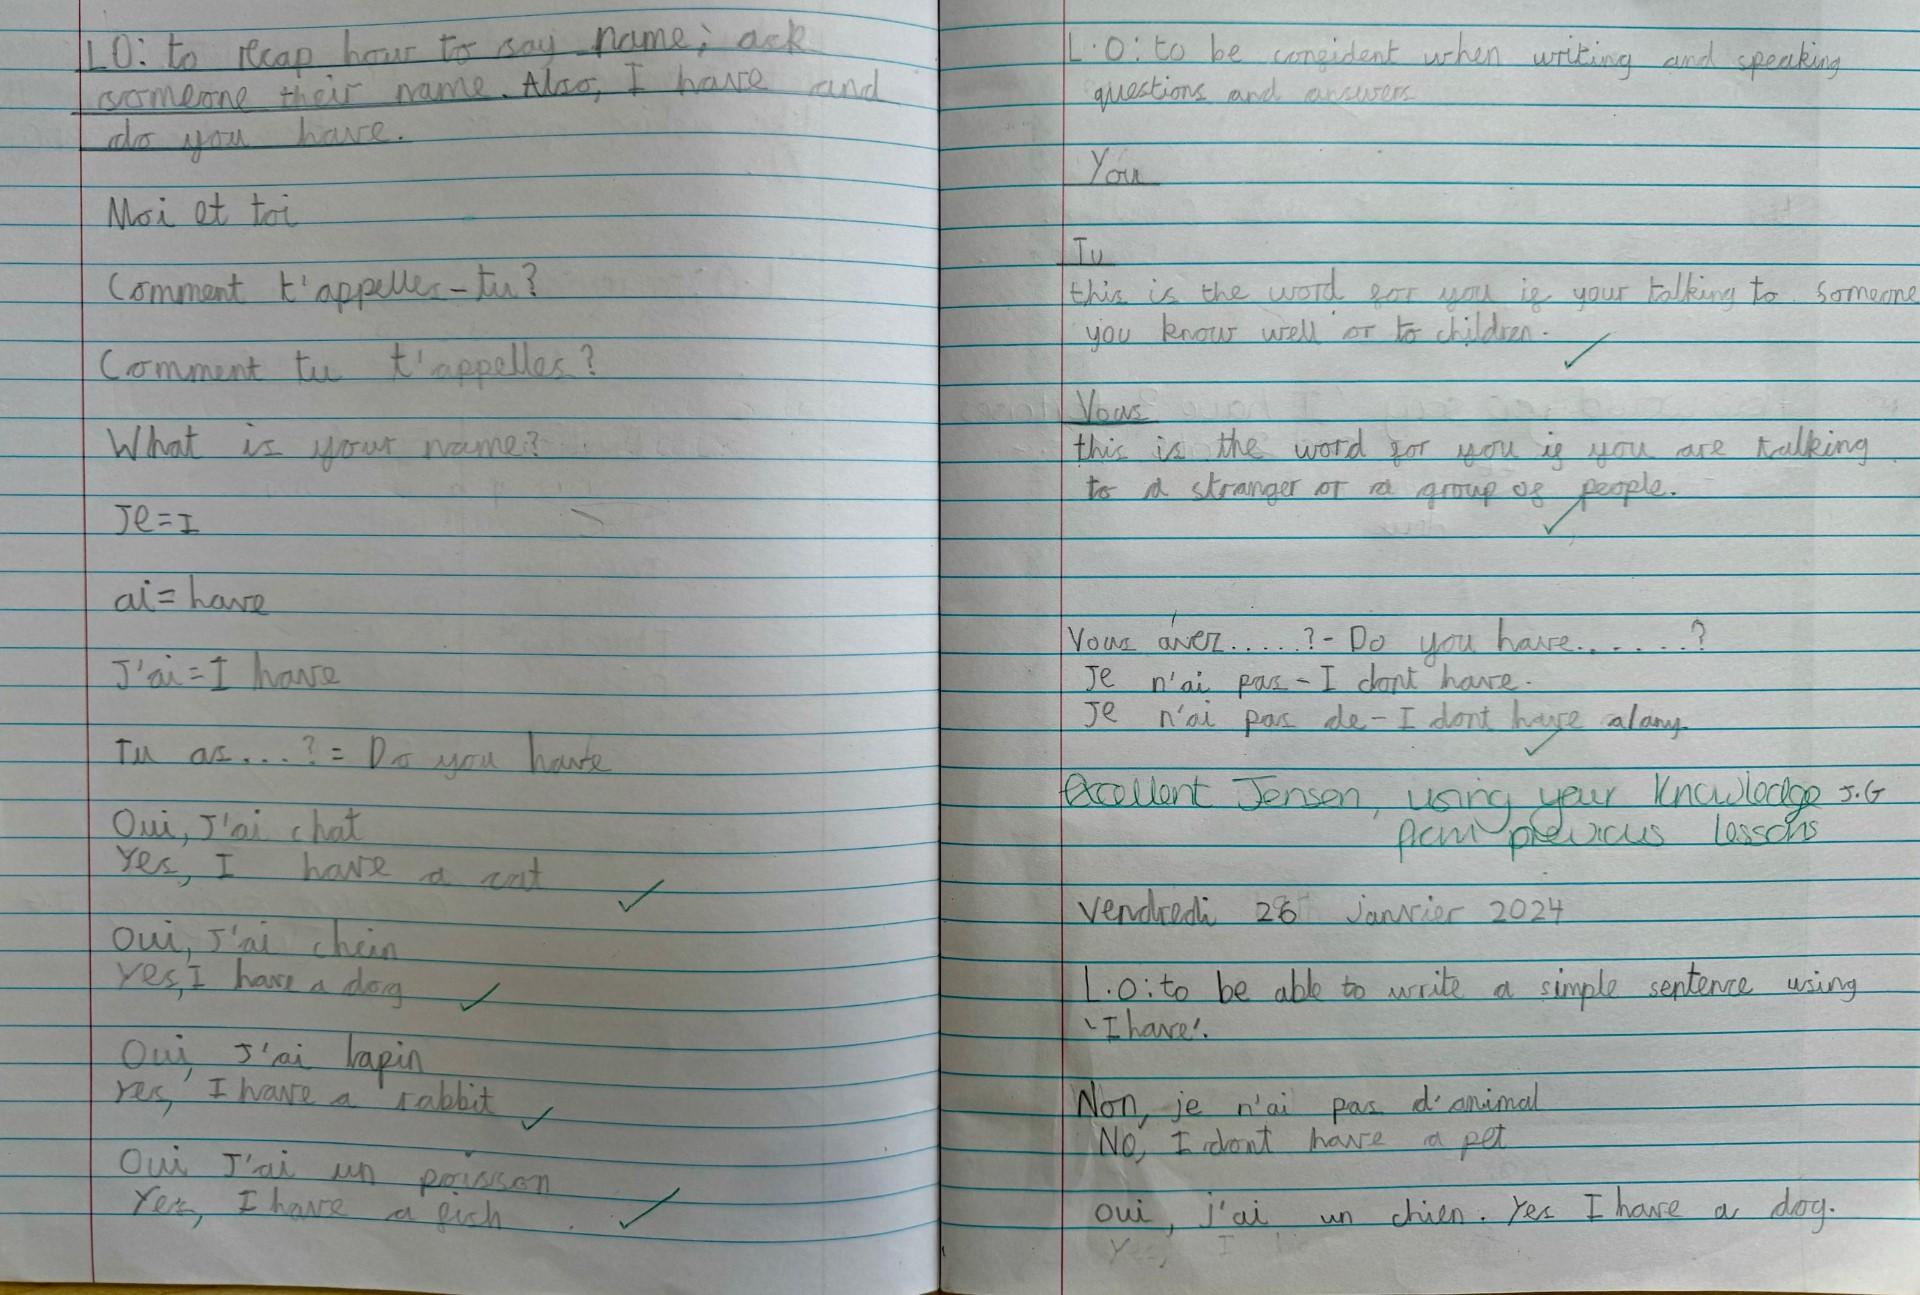 LO: to recap how to say name; ask
someone their name. Also, I have and
do you have.
Moi et toi
Comment t'appelles-tu?
Comment tu t'appelles?
What is your name?
Je=I
ai=have
J'ai=I have
Tu as....?= Do you have
Oui, J'ai chat
Yes, I have a cat
Oui, J'ai chein
Yes, I have a dog
Oui, J'ai lapin
Yes, I have a rabbit
Oui J'ai un poisson
Yes, I have a fish
L.O: to be confident when writing and speaking
questions and answers
You
Tu
this is the word for you if your talking to someone
you know well or to children.
Vous
this is the word for you if you are talking
to a stranger or a group of people.
Vous avez.....?- Do you have.......?
Je n'ai pas - I dont have.
Je n'ai pas de - I dont have a/any
Excellent Jensen, using your knowledge J.G
from previous lessons
Vendredi 26 janvier 2024
L.O: to be able to write a simple sentence using
'I have'.
Non, je n'ai pas d'animal
No, I dont have a pet
oui, j'ai un chien. Yes I have a dog.
Yes, I